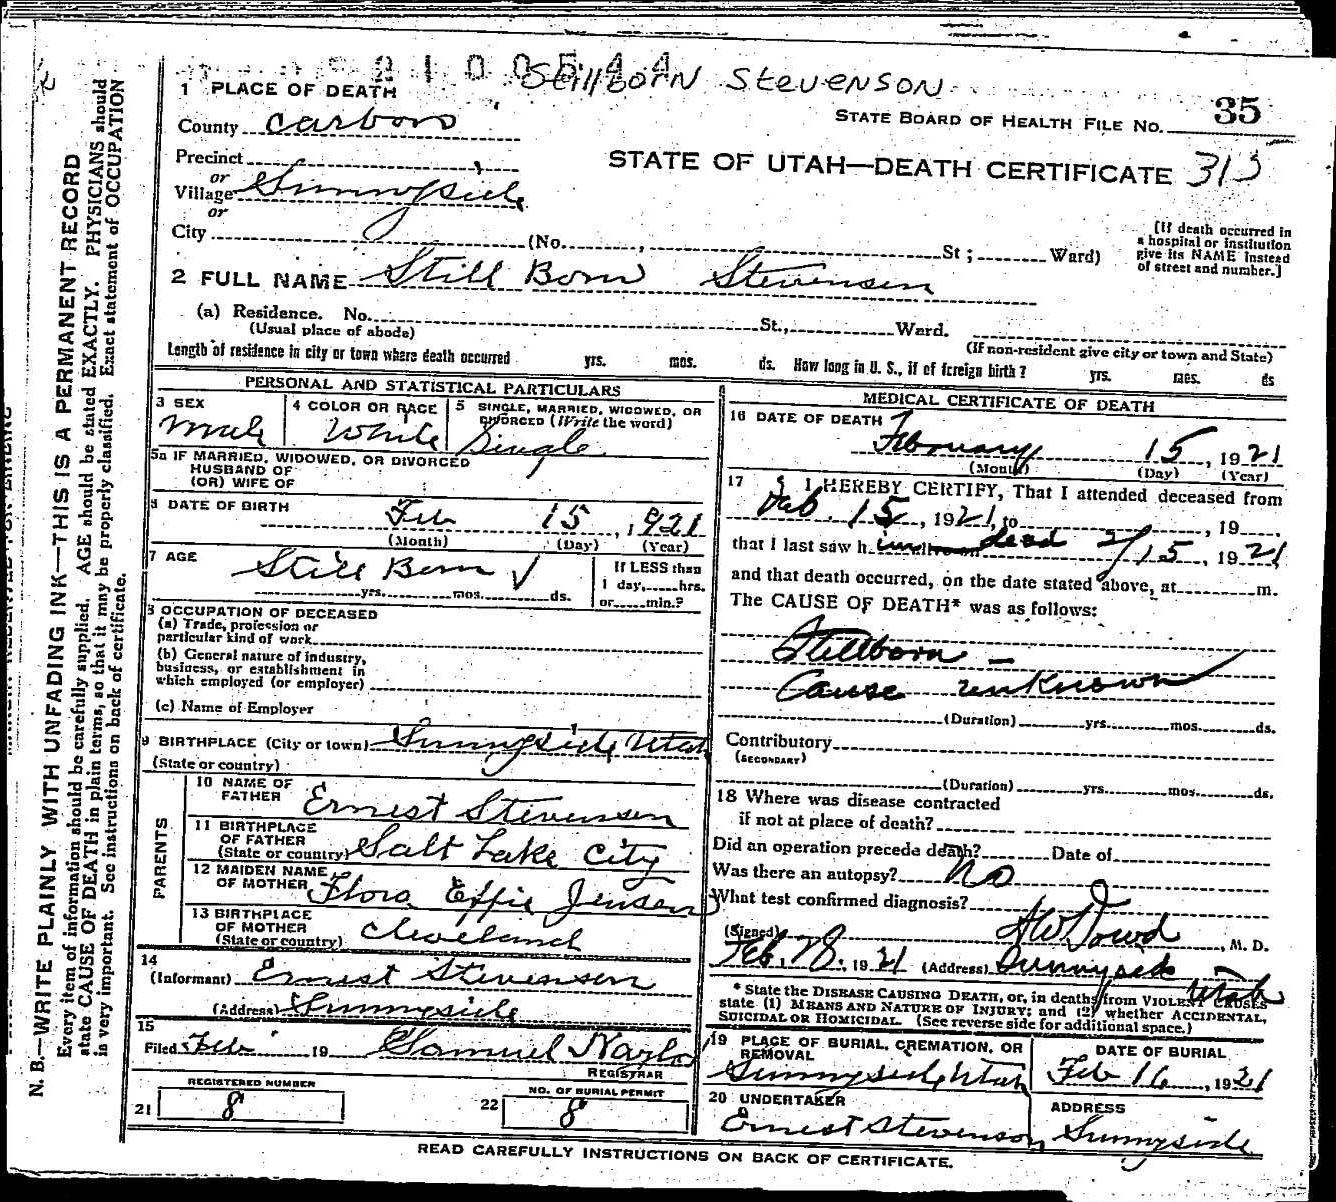 2100544
Stillborn Stevenson
1 PLACE OF DEATH
County Carbon
STATE BOARD OF HEALTH FILE NO. 35
Precinct
or
Village Sunnyside
or
STATE OF UTAH—DEATH CERTIFICATE 315
City (No. , St ; Ward)
[If death occurred in
a hospital or institution
give its NAME instead
of street and number.]
2 FULL NAME Still Born Stevensen
(a) Residence. No. St., Ward.
(Usual place of abode)
(If non-resident give city or town and State)
Length of residence in city or town where death occurred yrs. mos. ds. How long in U. S., if of foreign birth? yrs. mos. ds
PERSONAL AND STATISTICAL PARTICULARS
3 SEX
Male
4 COLOR OR RACE
White
5 SINGLE, MARRIED, WIDOWED, OR
DIVORCED (Write the word)
Single
5a IF MARRIED, WIDOWED, OR DIVORCED
HUSBAND OF
(OR) WIFE OF
6 DATE OF BIRTH
Feb 15, 1921
(Month) (Day) (Year)
7 AGE
Still Born
yrs. mos. ds.
If LESS than
1 day, hrs.
or min.?
8 OCCUPATION OF DECEASED
(a) Trade, profession or
particular kind of work
(b) General nature of industry,
business, or establishment in
which employed (or employer)
(c) Name of Employer
9 BIRTHPLACE (City or town) Sunnyside Utah
(State or country)
PARENTS
10 NAME OF
FATHER Ernest Stevensen
11 BIRTHPLACE
OF FATHER
(State or country) Salt Lake City
12 MAIDEN NAME
OF MOTHER Flora Effie Jensen
13 BIRTHPLACE
OF MOTHER
(State or country) Cleveland
14
(Informant) Ernest Stevenson
(Address) Sunnyside
15
Filed Feb 19 Samuel Naylor
REGISTRAR
REGISTERED NUMBER
21 8
NO. OF BURIAL PERMIT
22 8
MEDICAL CERTIFICATE OF DEATH
16 DATE OF DEATH
February 15, 1921
(Month) (Day) (Year)
17 I HEREBY CERTIFY, That I attended deceased from
Feb. 15, 1921, to , 19
that I last saw him alive on dead 2/15, 1921
and that death occurred, on the date stated above, at m.
The CAUSE OF DEATH* was as follows:
Stillborn —
Cause unknown
(Duration) yrs. mos. ds.
Contributory
(SECONDARY)
(Duration) yrs. mos. ds.
18 Where was disease contracted
if not at place of death?
Did an operation precede death? Date of
Was there an autopsy? No
What test confirmed diagnosis?
(Signed) AW Dowd, M. D.
Feb. 28. 1921 (Address) Sunnyside Utah
* State the DISEASE CAUSING DEATH, or, in deaths from VIOLENT CAUSES
state (1) MEANS AND NATURE OF INJURY; and (2) whether ACCIDENTAL,
SUICIDAL OR HOMICIDAL. (See reverse side for additional space.)
19 PLACE OF BURIAL, CREMATION, OR
REMOVAL
Sunnyside Utah
DATE OF BURIAL
Feb 16, 1921
20 UNDERTAKER
Ernest Stevenson
ADDRESS
Sunnyside
READ CAREFULLY INSTRUCTIONS ON BACK OF CERTIFICATE.
N. B.—WRITE PLAINLY WITH UNFADING INK—THIS IS A PERMANENT RECORD
Every item of information should be carefully supplied. AGE should be stated EXACTLY. PHYSICIANS should
state CAUSE OF DEATH in plain terms, so that it may be properly classified. Exact statement of OCCUPATION
is very important. See instructions on back of certificate.